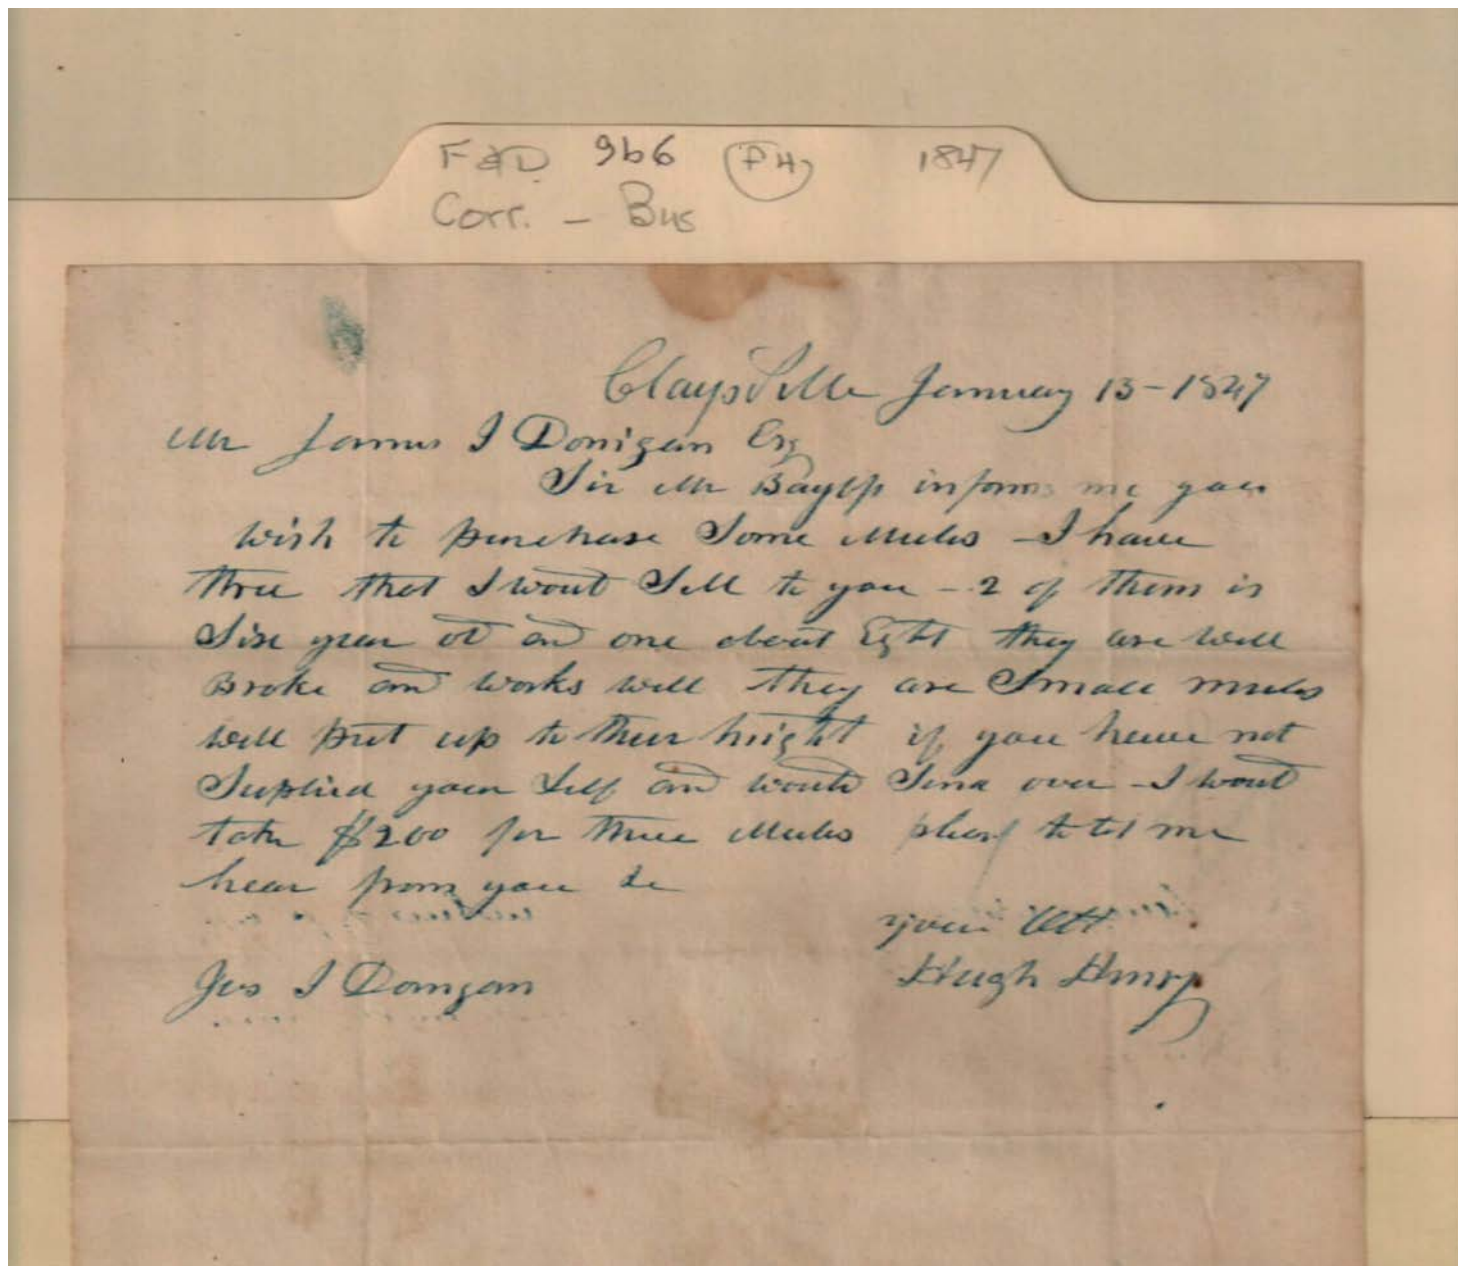 F&D. 9b6 P4 1847
Corr. - Bus
Claysville January 13 - 1847
Mr James I Donigan Esq
Sir Mr informs me you
wish to purchase Some Mules - I have
three that I wout Sell to you - 2 of them is
Six year old and one about Eght they are well
Broke and works well they are Small mules
well put up to their hight if you have not
Suplied your Self and would Send over - I woud
take $200 for three Mules pleas to let me
hear from you &c
your Obt.
Jas I Donigan Hugh Henry